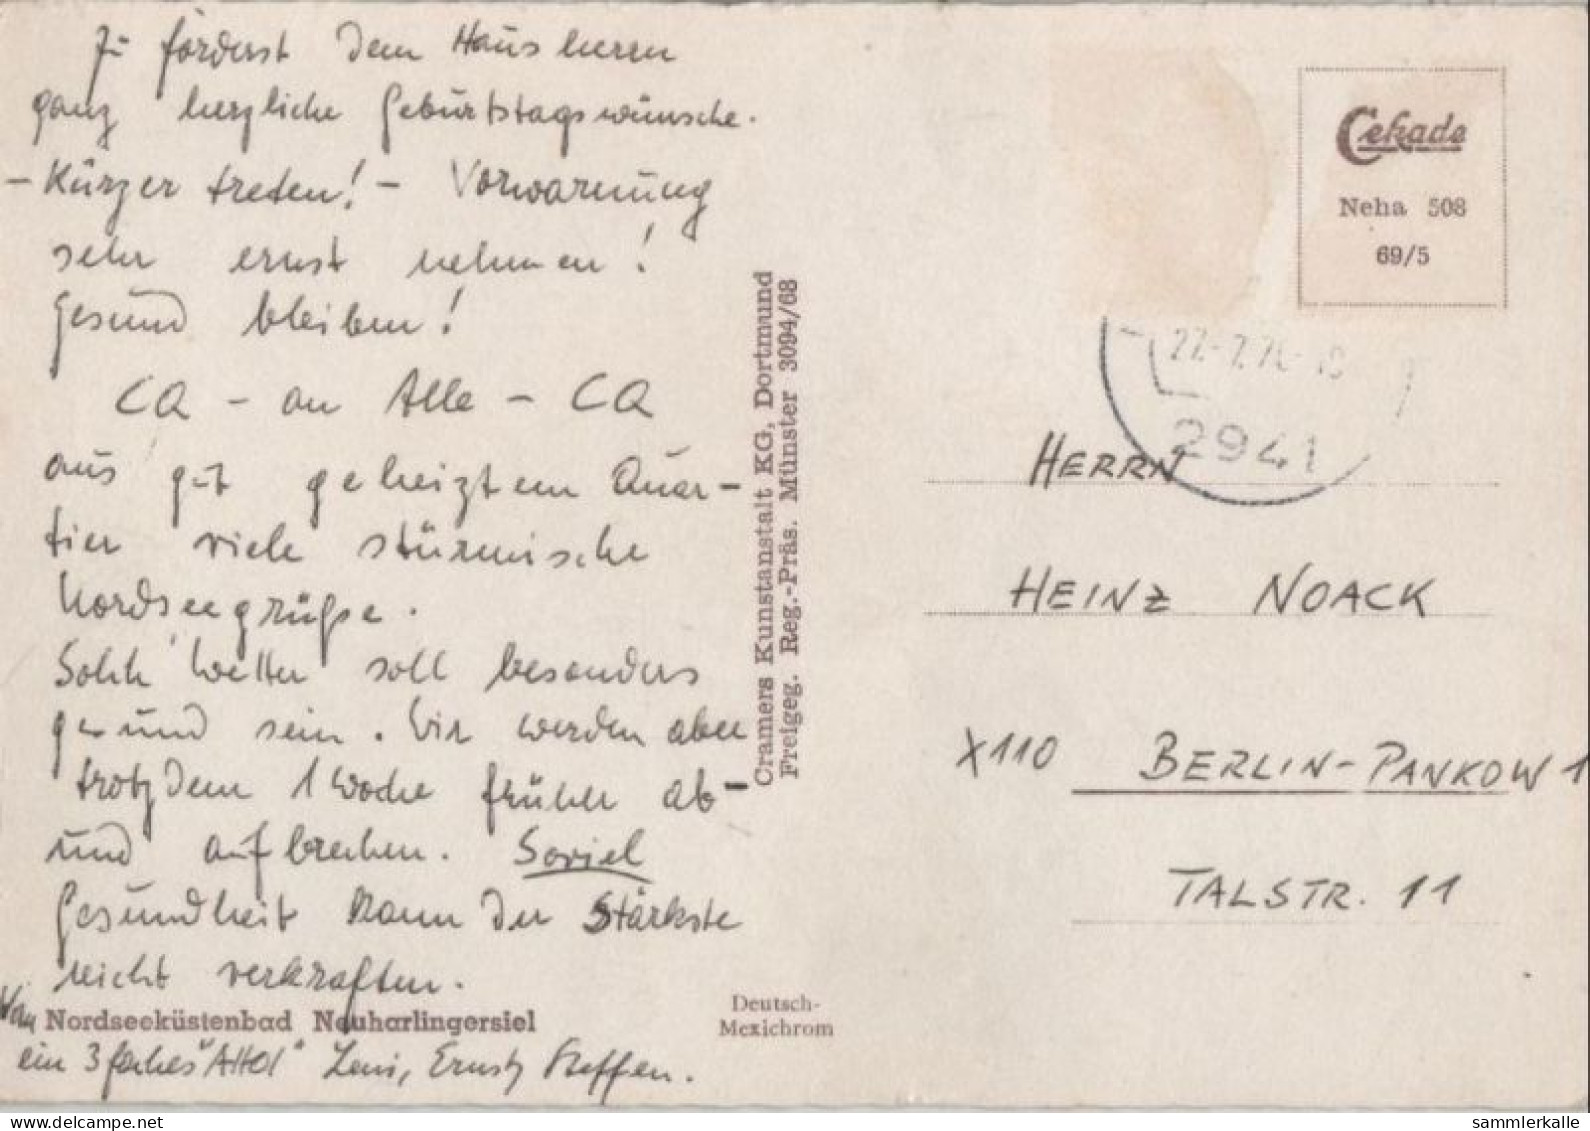 Zu förderst dem Hausherrn
ganz herzliche Geburtstagswünsche.
- Kürzer treten! - Vorwarnung
sehr ernst nehmen!
Gesund bleiben!
CQ - an Alle - CQ
aus gut geheiztem Quar-
tier viele stürmische
Nordseegrüße.
Solch Wetter soll besonders
gesund sein. Wir werden aber
trotzdem 1 Woche früher ab-
und aufbrechen. Soviel
Gesundheit kann der Stärkste
nicht verkraften.
Vom Nordseeküstenbad Neuharlingersiel
ein 3faches "Ahoi" Leni, Ernst, Steffen.
Cramers Kunstanstalt KG, Dortmund
Freigeg. Reg.-Präs. Münster 3094/68
Deutsch-
Mexichrom
Cekade
Neha 508
69/5
2941
HERRN
HEINZ NOACK
X110 BERLIN-PANKOW 1
TALSTR. 11
delcampe.net
sammlerkalle